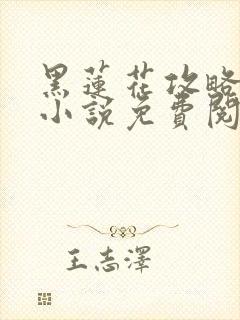 黑莲花攻略
小說免費閱
王志澤